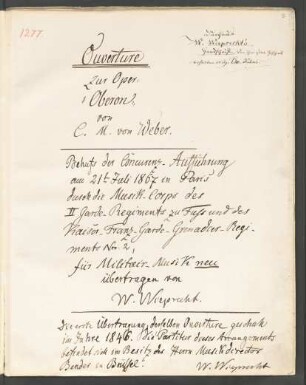 1277.
W. Wieprecht's
Handschrift
Ouverture
zur Oper:
Oberon,
von
C. M. von Weber.
Behufs der Concurrenz-Aufführung
am 21t. Juli 1867 in Paris
durch die Musik-Corps des
II Garde-Regiments zu Fuss und des
Kaiser-Franz-Garde-Grenadier-Regi-
ments Nr. 2,
für Militair-Musik neu
übertragen von
W. Wieprecht.
Die erste Übertragung derselben Ouverture geschah
im Jahre 1846. Die Partitur dieses Arrangements
befindet sich im Besitz des Herrn Musikdirector
Bender in Brüssel.
W. Wieprecht